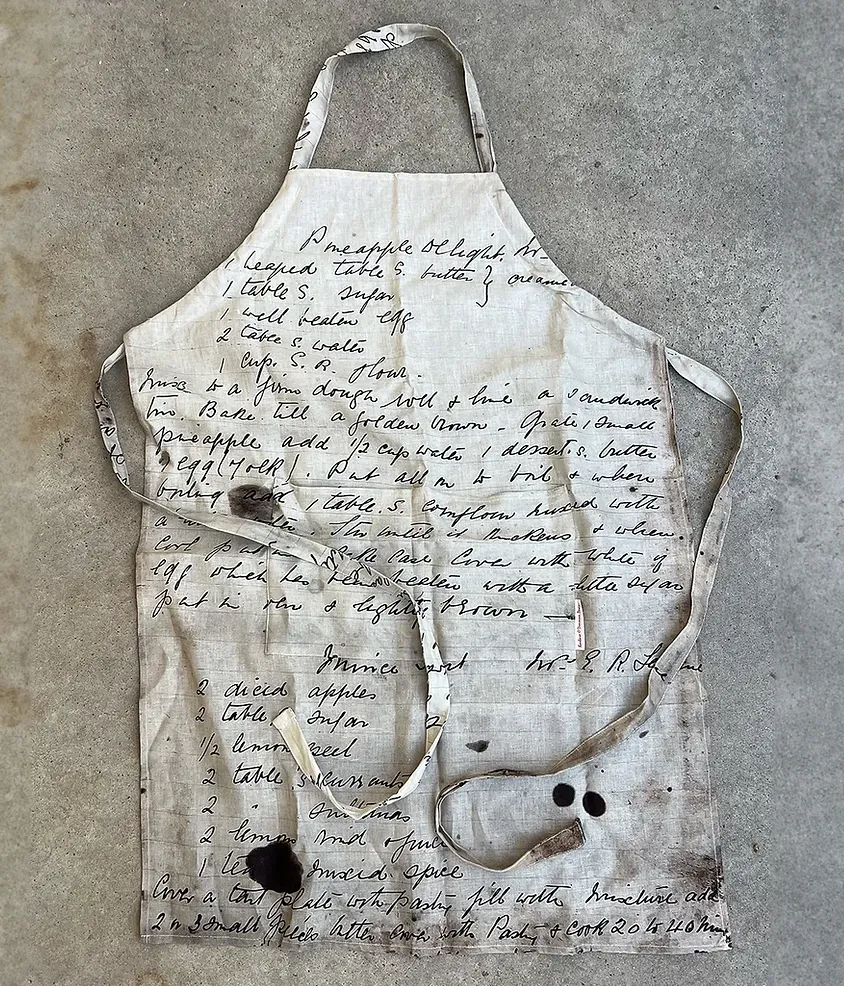 Pineapple Delight. Mr
1 heaped table s. butter } creamed
1 table s. sugar
1 well beaten egg
2 table s. water
1 cup. S. R. flour.
Mix to a firm dough roll & line a sandwich
tin. Bake till a golden brown - Grate 1 small
pineapple add 1/2 cup water 1 dessert.s. butter
1 egg (Yolk). Put all on to boil & when
boiling add 1 table. s. cornflour mixed with
a water. Stir until it thickens & when
cool put in case Cover with white of
egg which has been beaten with a little sugar
put in oven & lightly brown —
Mince Mr E. R.
2 diced apples
2 table sugar
1/2 lemon peel
2 table s currants
2 " sultanas
2 lemons rind & juice
1 tea mixed spice
Cover a tart plate with pastry fill with mixture add
2 or 3 small pieces butter cover with Pastry & cook 20 to 40 mins